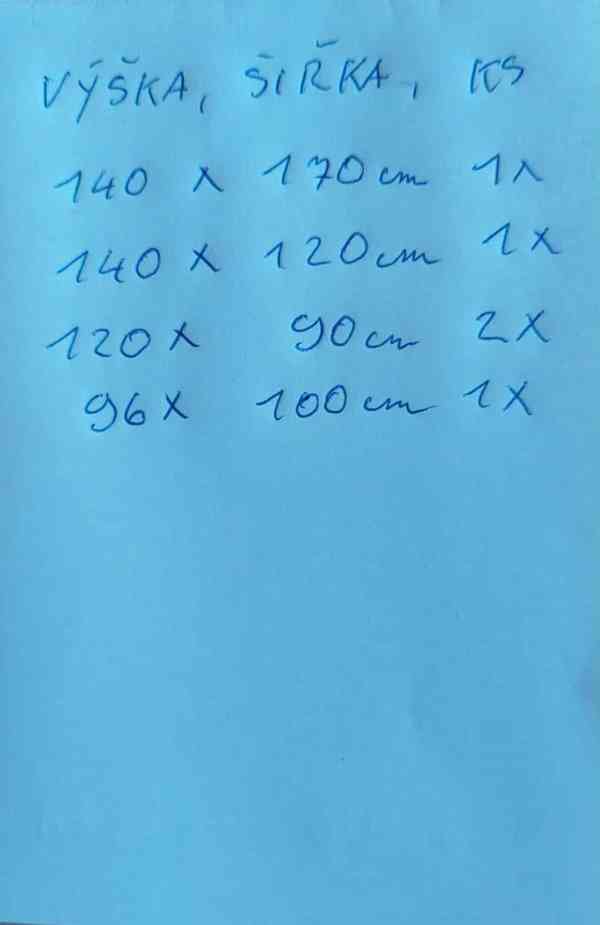 VÝŠKA, ŠIŘKA, KS
140 x 170 cm 1x
140 x 120 cm 1x
120 x 90 cm 2x
96 x 100 cm 1x